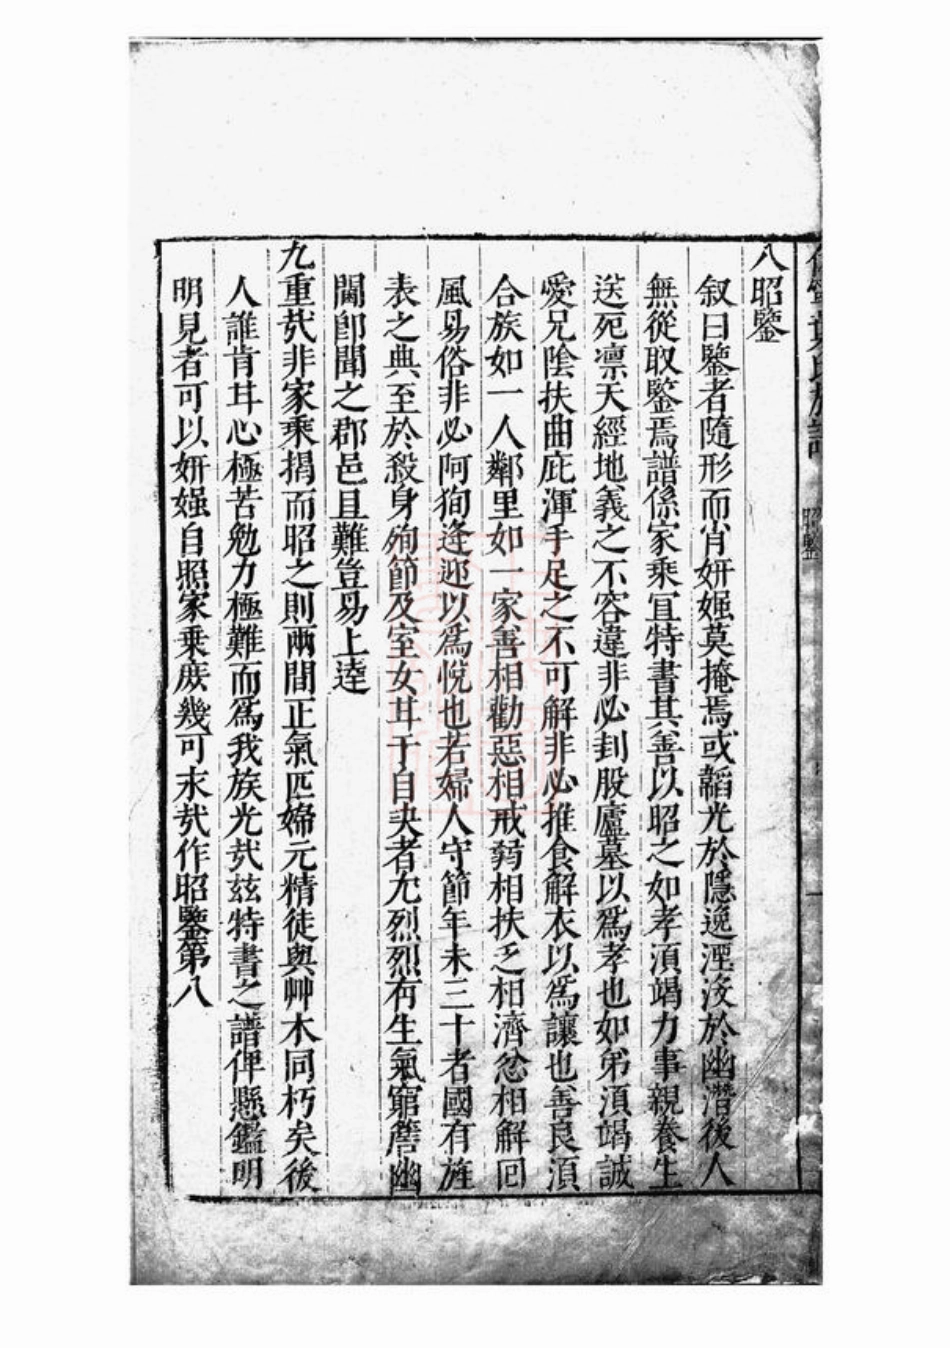 八昭鑒
叙曰鑒者隨形而肖妍媸莫掩焉或韜光於隱逸湮沒於幽潛後人
無從取鑒焉譜係家乘宜特書其善以昭之如孝須竭力事親養生
送死凛天經地義之不容違非必刲股廬墓以爲孝也如弟須竭誠
愛兄陰扶曲庇渾手足之不可解非必推食解衣以爲讓也善良須
合族如一人鄰里如一家善相勸惡相戒弱相扶乏相濟忿相解回
風易俗非必阿狥逢迎以爲悅也若婦人守節年未三十者國有旌
表之典至於殺身殉節及室女耳于自夬者尤烈烈有生氣窮簷幽
閫卽聞之郡邑且難豈易上逹
九重㢤非家乘揭而昭之則兩間正氣匹婦元精徒與艸木同朽矣後
人誰肯耳心極苦勉力極難而爲我族光㢤兹特書之譜俾懸鑑明
明見者可以妍媸自照家乗庻幾可末㢤作昭鑒第八
昭鑒
一